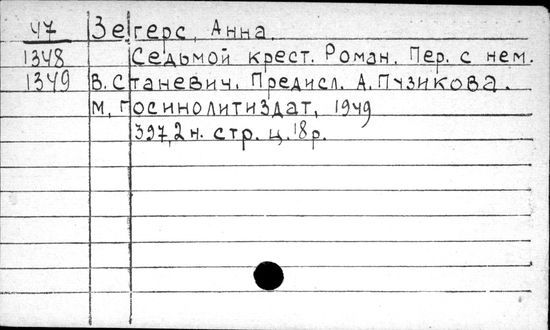 47 Зегерс, Анна.
1348 Седьмой крест. Роман. Пер. с нем.
1349 В. Станевич. Предисл. А. Пузикова.
М, Госинолитиздат, 1949
397,2н. стр. ц. 18р.